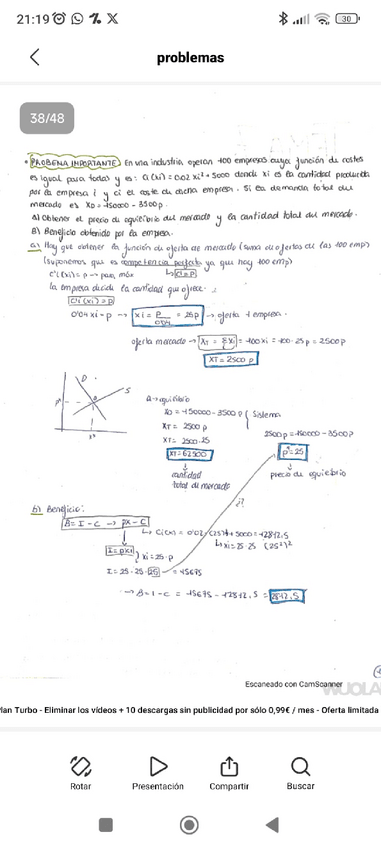 21:19
30
problemas
38/48
PROBLEMA IMPORTANTE: En una industria operan 100 empresas cuya función de costes
es igual para todas y es: Ci(xi) = 0'02 xi² + 5000 donde xi es la cantidad producida
por la empresa i y ci el coste de dicha empresa. Si la demanda total del
mercado es XD = 150000 - 3500p.
A) Obtener el precio de equilibrio del mercado y la cantidad total du mercado.
B) Beneficio obtenido por la empresa.
a) Hay que obtener la función de oferta de mercado (suma de ofertas de las 100 emp)
(suponemos que es competencia perfecta ya que hay 100 emp)
C'i(xi) = p → para máx
la empresa decide la cantidad que ofrece.
C'i(xi) = p
0'04 xi = p → xi = p/0'04 = 25p → oferta 1 empresa.
oferta mercado → XT = Σxi = 100xi = 100·25p = 2500p
XT = 2500p
D
S
p*
x*
A → equilibrio
XD = 150000 - 3500p
Sistema
XT = 2500p
2500p = 150000 - 3500p
XT = 2500·25
XT = 62500
p* = 25
cantidad
total de mercado
precio de equilibrio
b) Beneficio:
B = I - C → px - C
C(xi) = 0'02·(25²)² + 5000 = 12812,5
xi = 25·25 (25²)²
I = p·xi
xi = 25·p
I = 25·25·25 = 15675
→ B = I - C = 15675 - 12812,5 = 2812,5
Escaneado con CamScanner
WUOLA
lan Turbo - Eliminar los vídeos + 10 descargas sin publicidad por sólo 0,99€ / mes - Oferta limitada
Rotar
Presentación
Compartir
Buscar